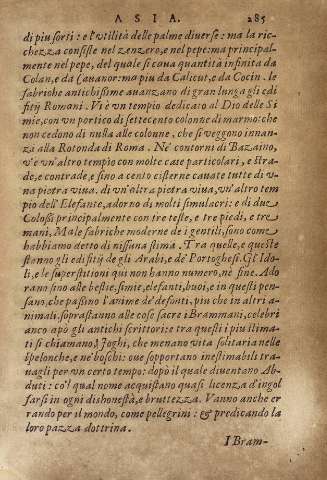 ASIA. 285
di piu sorti: e l'vtilità delle palme diuerse: ma la ric-
chezza consiste nel zenzero, e nel pepe: ma principal-
mente nel pepe, del quale si caua quantità infinita da
Colan, e da Cauanor: ma piu da Calicut, e da Cocin. le
fabriche antichissime auanzano di gran lunga gli edi
fitij Romani. Vi è vn tempio dedicato al Dio delle Si
mie, con vn portico di settecento colonne di marmo: che
non cedono di nulla alle colonne, che si veggono innan-
za alla Rotonda di Roma. Ne' contorni di Bazaino,
v'è vn'altro tempio con molte case particolari, e stra-
de, e contrade, e sino a cento cisterne cauate tutte di v-
na pietra viua. di vn'altra pietra viua, vn'altro tem
pio dell'Elefante, adorno di molti simulacri: e di due
Colossi principalmente con tre teste, e tre piedi, e tre
mani, Ma le fabriche moderne de i gentili, sono come
habbiamo detto di nissuna stima. Tra quelle, e queste
stanno gli edifitij de gli Arabi, e de' Portoghesi. Gl'Ido-
li, e le superstitioni qui non hanno numero, nè fine. Ado
rano sino alle bestie, simie, elefanti, buoi, e in questi pen-
sano, che passino l'anime de' defonti, piu che in altri a-
nimali. soprastanno alle cose sacre i Brammani, celebri
anco apò gli antichi scrittori: tra questi i piu stima-
ti si chiamano, Ioghi, che menano vita solitaria nelle
spelonche, e ne' boschi: oue sopportano inestimabili tra-
uagli per vn certo tempo: dopò il quale diuentano Ab-
duti: co'l qual nome acquistano quasi licenza d'ingol
farsi in ogni dishonestà, e bruttezza. Vanno anche er
rando per il mondo, come pellegrini: & predicando la
loro pazza dottrina.
I Bram-